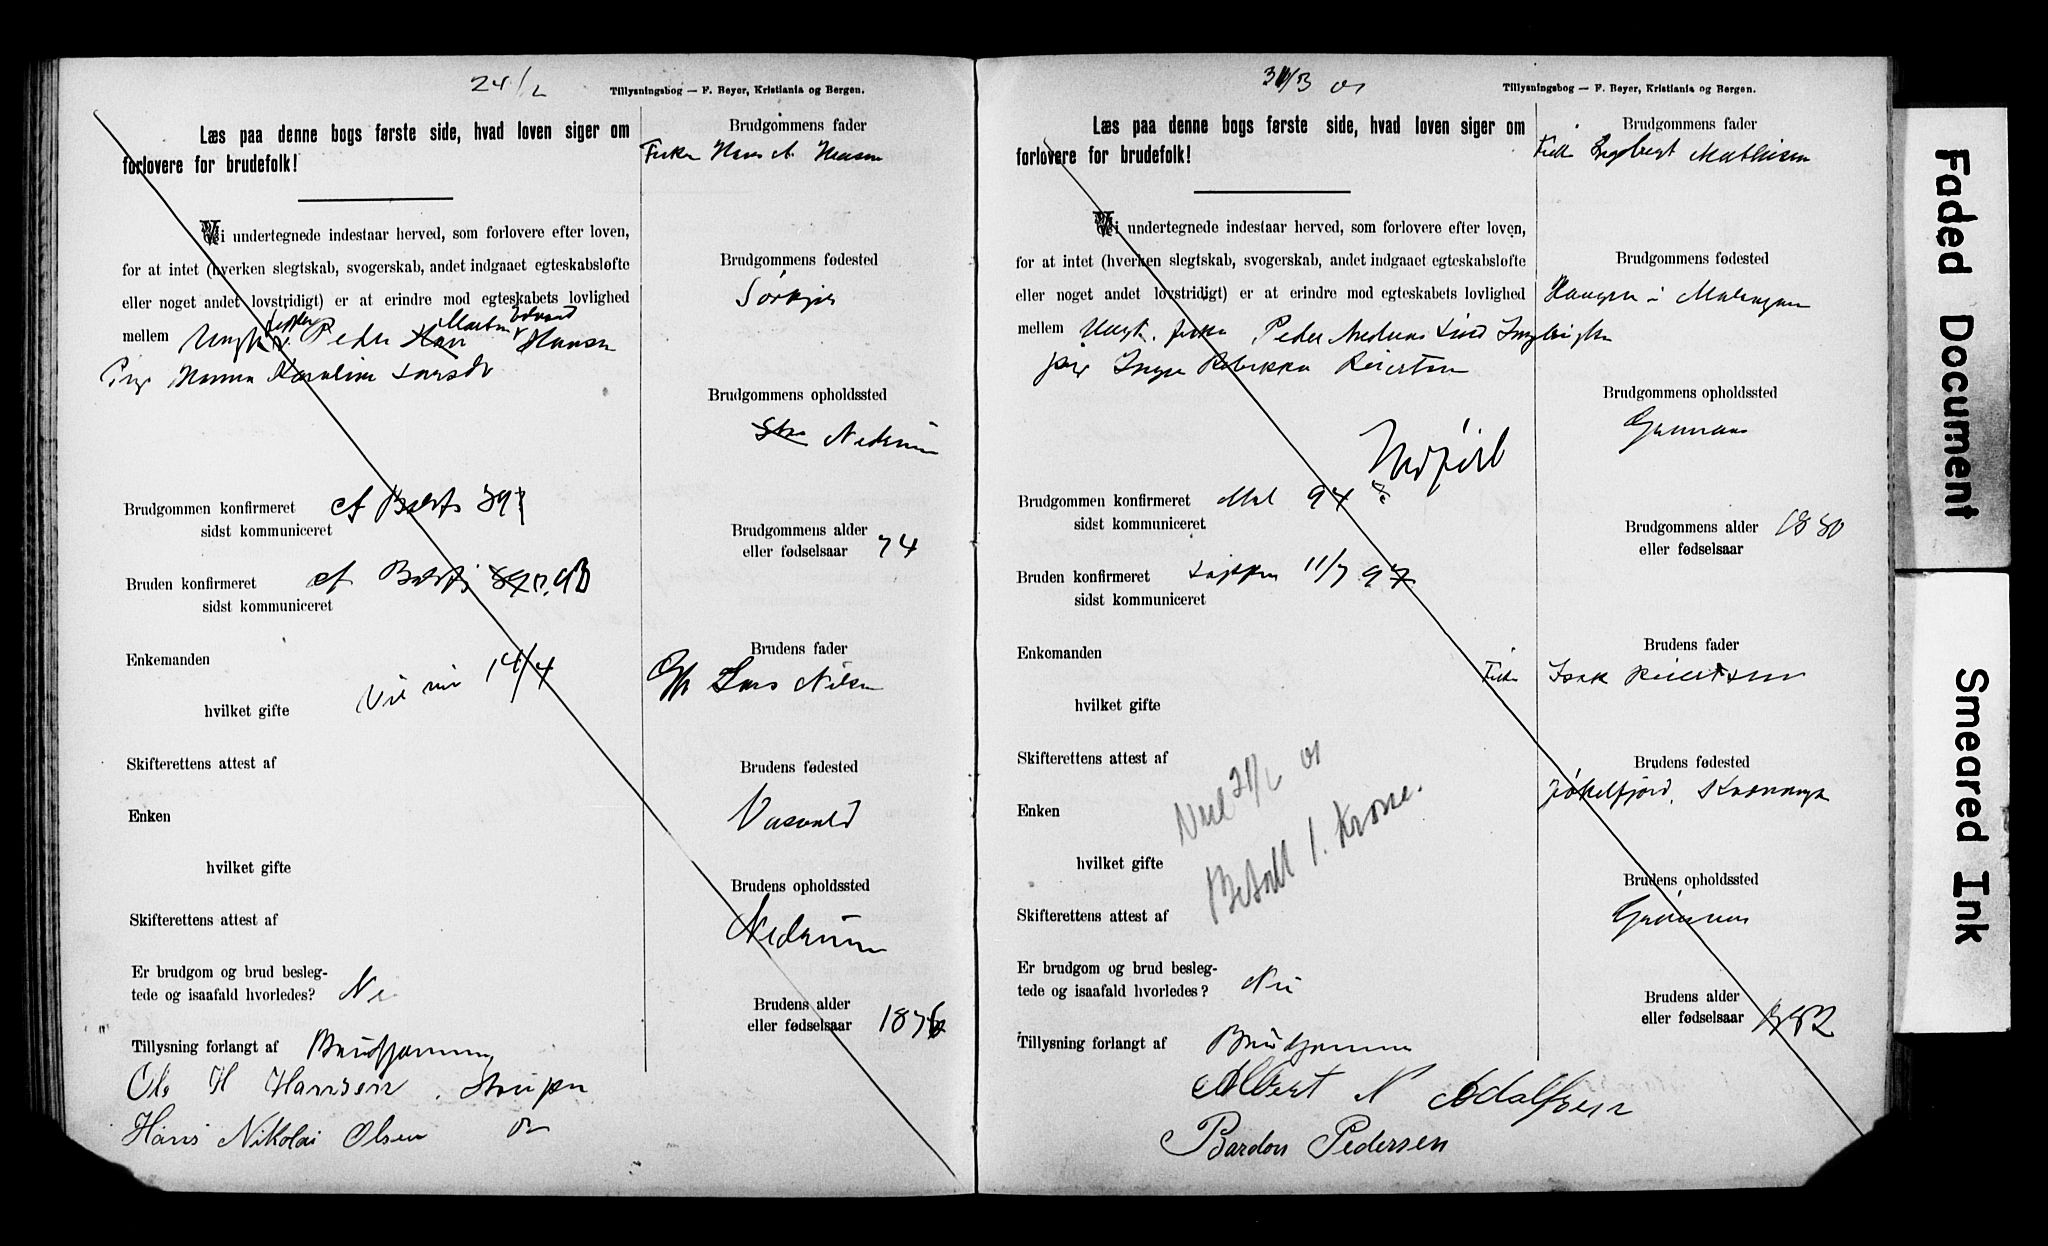 24/2
Tillysningsbog — F. Beyer, Kristiania og Bergen.
Læs paa denne bogs første side, hvad loven siger om
forlovere for brudefolk!
Vi undertegnede indestaar herved, som forlovere efter loven,
for at intet (hverken slegtskab, svogerskab, andet indgaaet egteskabsløfte
eller noget andet lovstridigt) er at erindre mod egteskabets lovlighed
mellem Ungk. Peder Martin Edvard Hansen
Pige Hanna Karoline Larsdr
Brudgommen konfirmeret af Balsfj 89
sidst kommuniceret
Bruden konfirmeret af Balsfj
sidst kommuniceret
Enkemanden
14/4
hvilket gifte
Skifterettens attest af
Enken
hvilket gifte
Skifterettens attest af
Er brudgom og brud besleg-
tede og isaafald hvorledes? Nei
Tillysning forlangt af Brudgommen
Ole H Hansen
Hans Nikolai Olsen
Brudgommens fader
Fisker Hans A. Hansen
Brudgommens fødested
Brudgommens opholdssted
Brudgommens alder
eller fødselsaar 74
Brudens fader
Lars Nilsen
Brudens fødested
Brudens opholdssted
Brudens alder
eller fødselsaar 1876
31/3 01
Tillysningsbog — F. Beyer, Kristiania og Bergen.
Læs paa denne bogs første side, hvad loven siger om
forlovere for brudefolk!
Vi undertegnede indestaar herved, som forlovere efter loven,
for at intet (hverken slegtskab, svogerskab, andet indgaaet egteskabsløfte
eller noget andet lovstridigt) er at erindre mod egteskabets lovlighed
mellem Ungk. fisker Peder Andreas Lind Ingbrigtsen
pige Inga Rebekka Reiertsen
Indført
Brudgommen konfirmeret Mal 94
sidst kommuniceret
Bruden konfirmeret 11/7 97
sidst kommuniceret
Enkemanden
hvilket gifte
Skifterettens attest af
Enken
hvilket gifte
Betalt 1. Krone.
Skifterettens attest af
Er brudgom og brud besleg-
tede og isaafald hvorledes? Nei
Tillysning forlangt af Brudgommen
Albert N Adalfsen
Bardon Pedersen
Brudgommens fader
Ingebrigt Mathisen
Brudgommens fødested
i Malangen
Brudgommens opholdssted
Brudgommens alder
eller fødselsaar 1880
Brudens fader
Isak Reiertsen
Brudens fødested
Jøkelfjord, Kvænangen
Brudens opholdssted
Brudens alder
eller fødselsaar 1882
Faded Document
Smeared Ink